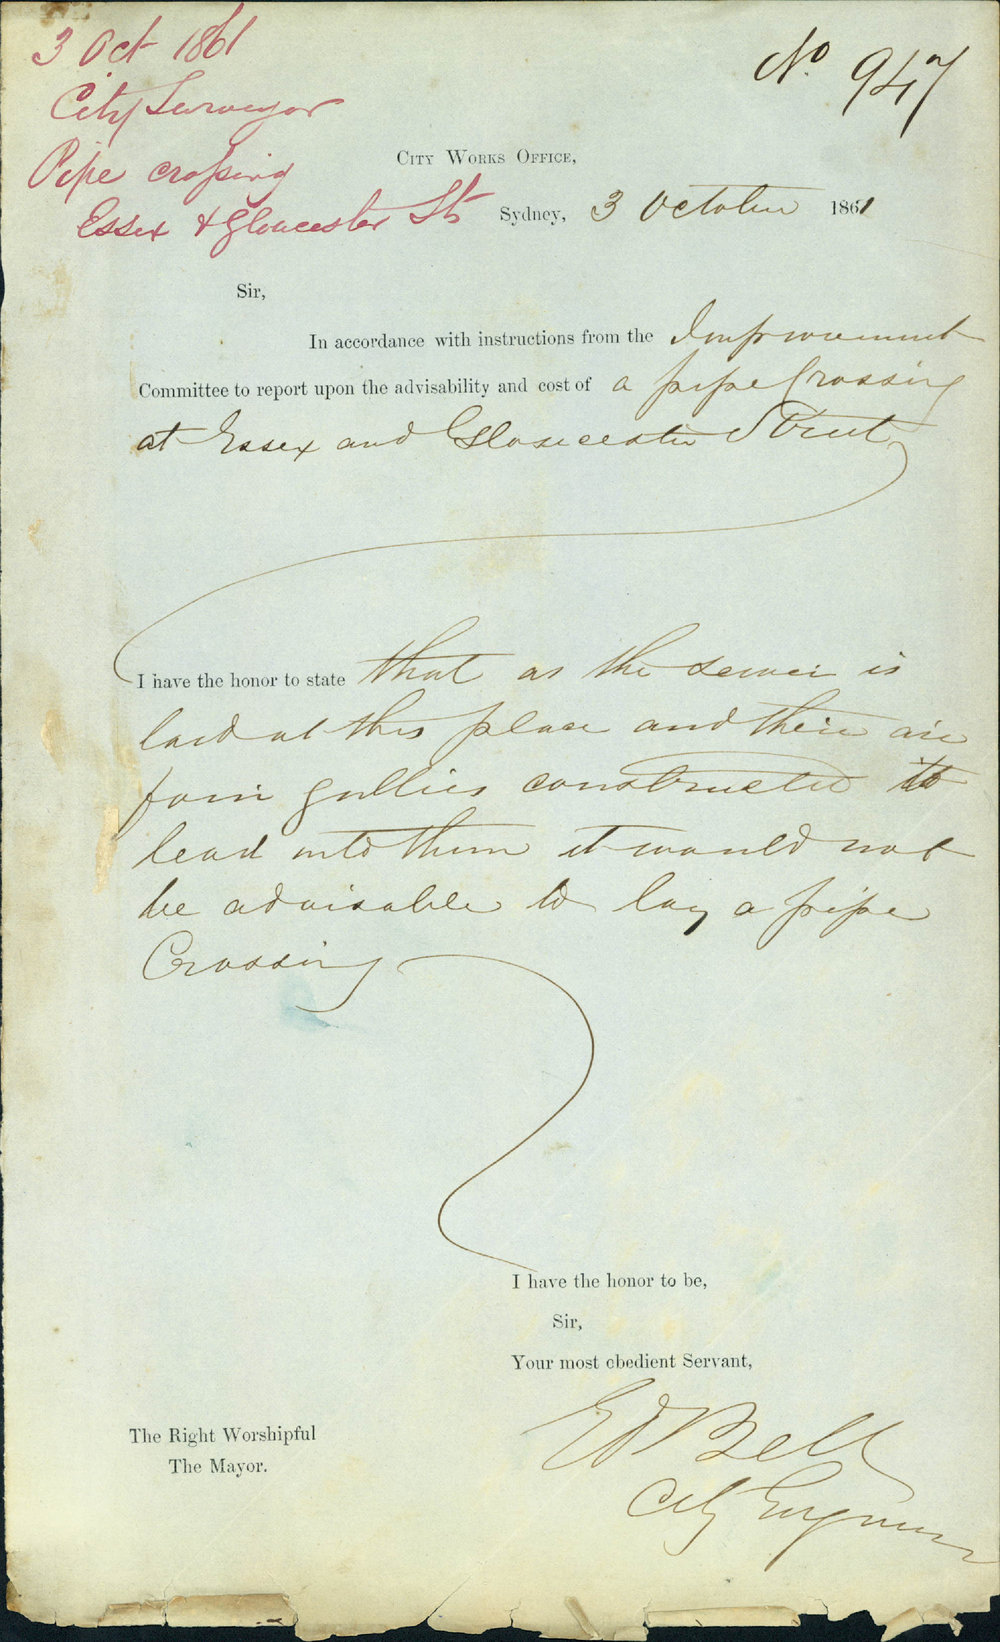 3 Oct 1861
City Surveyor
Pipe crossing
Essex & Gloucester Sts
No 947
City Works Office,
Sydney, 3 October 1861
Sir,
In accordance with instructions from the Improvement
Committee to report upon the advisability and cost of a pipe Crossing
at Essex and Gloucester Street
I have the honor to state that as the sewer is
laid at this place and there are
four gullies constructed to
lead into them it would not
be advisable to lay a pipe
Crossing
I have the honor to be,
Sir,
Your most obedient Servant,
Ed Bell
City Engineer
The Right Worshipful
The Mayor.